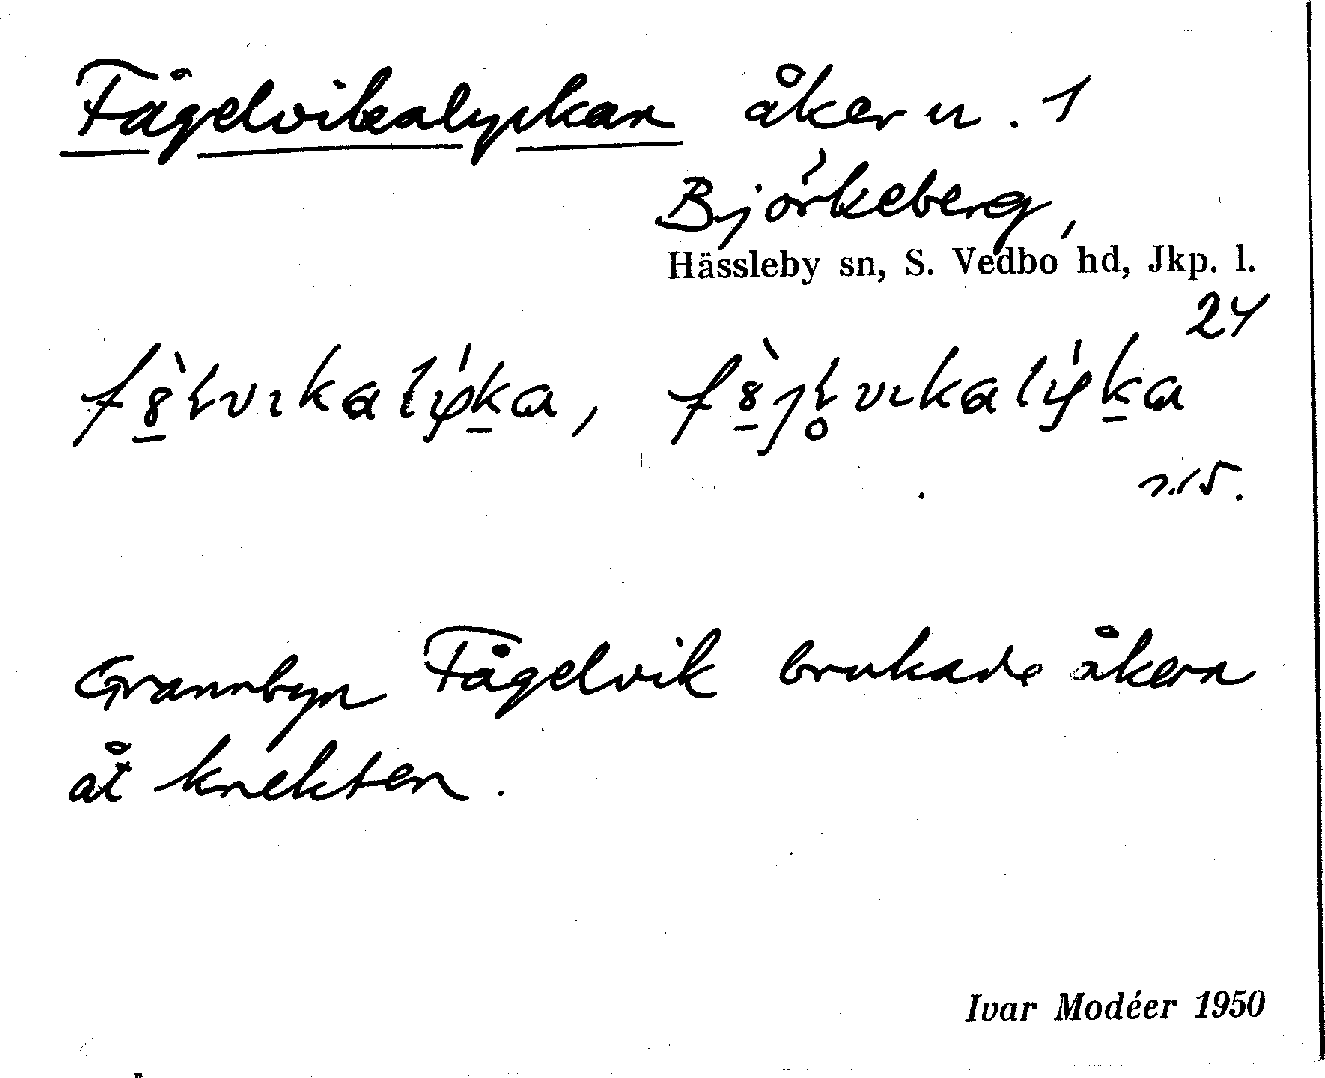 Fågelvikalyckan åker n. 1
Björkeberg,
Hässleby sn, S. Vedbo hd, Jkp. l.
24
Grannbyn Fågelvik brukade åkern
åt knekten.
Ivar Modéer 1950